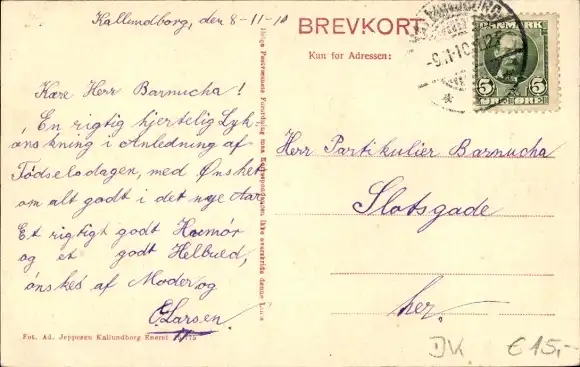 Kallundborg, den 8-11-10
Kære Herr Barnucha!
En rigtig hjertelig Lyk
ønskning i Anledning af
Fødselsdagen, med Ønsket
om alt godt i det nye Aar
Et rigtigt godt Humør
og et godt Helbred,
ønskes af Moder og
C. Larsen.
Fot. Ad. Jeppesen Kallundborg Eneret
Ifølge Postvæsenets Forordning maa Korrespondancen ikke overskride denne Linie
BREVKORT
Kun for Adressen:
KALLUNDBORG
DANMARK
5 5
ØRE ØRE
Herr Partikulier Barnucha
Slotsgade
her.
DK €15,-